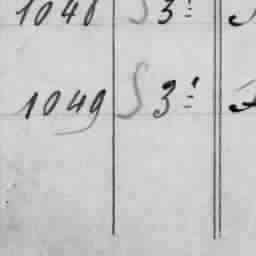 1048 S 3:
1049 S 3: